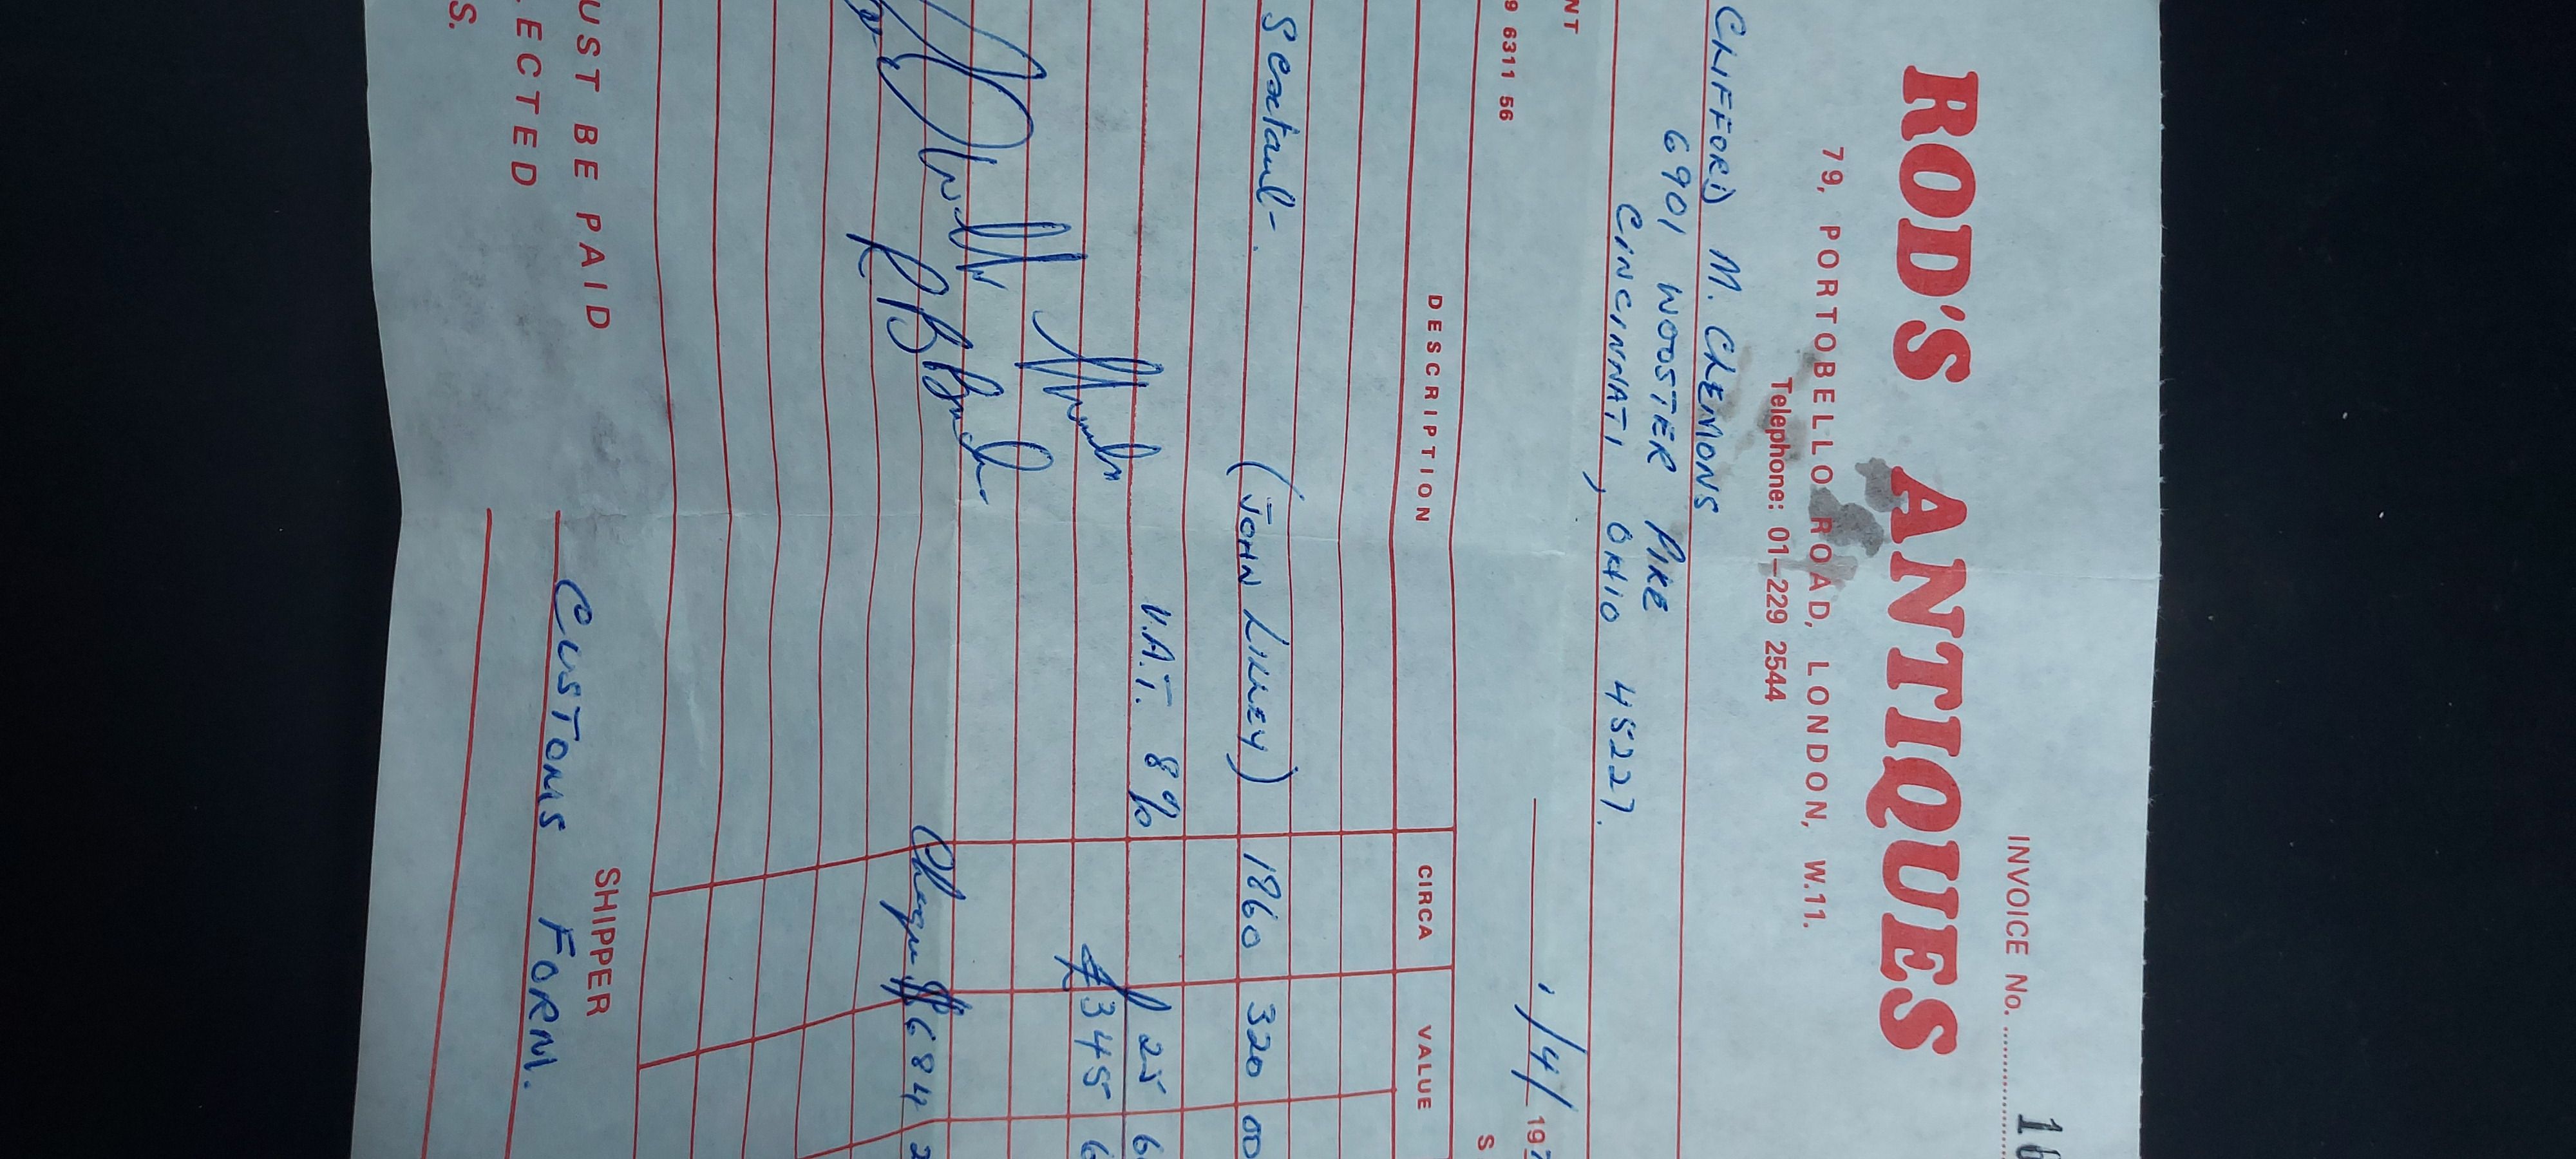 INVOICE No. 16
ROD'S ANTIQUES
79, PORTOBELLO ROAD, LONDON, W.11.
Telephone: 01-229 2544
CLIFFORD M. CLEMONS
6901 WOOSTER PIKE
CINCINNATI, OHIO 45227.
NT
/4/ 197
9 6311 56
S
DESCRIPTION CIRCA VALUE
Sextant- (JOHN LILLEY) 1860 320 00
V.A.T. 8% 25 6
£345 6
Cheque $684 2
SHIPPER
UST BE PAID
CUSTOMS FORM.
LECTED
S.